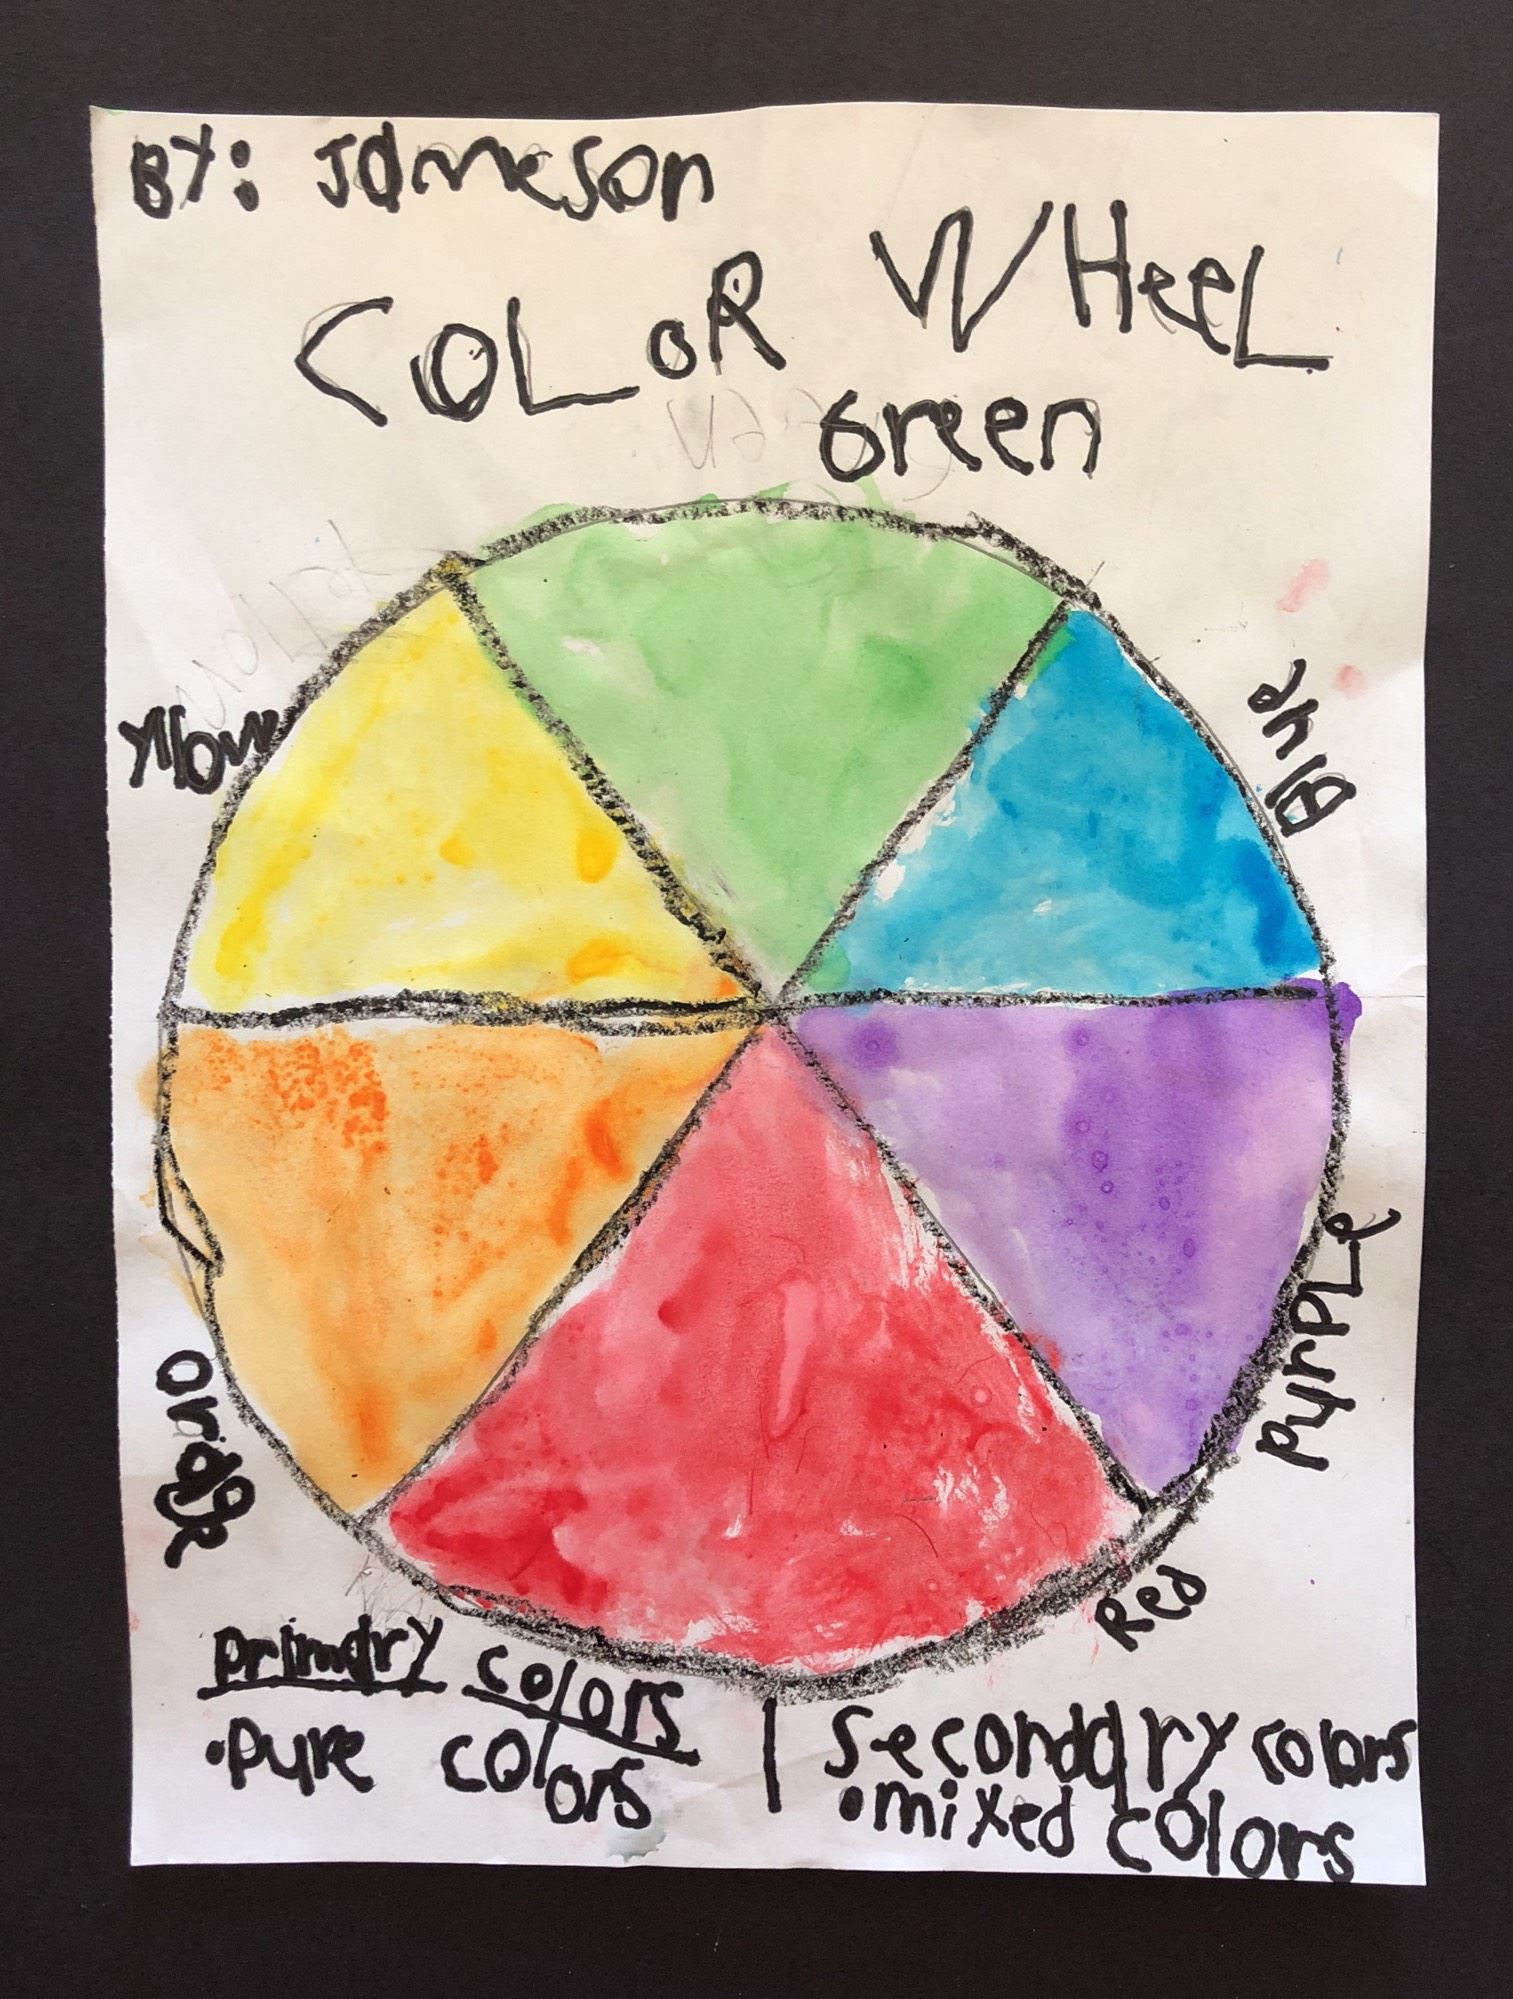 BY: Jameson
COLoR WHeeL
Green
Yllow
Blue
PurPLe
orange
Red
primary colors
•pure colors
secondary colors
•mixed colors